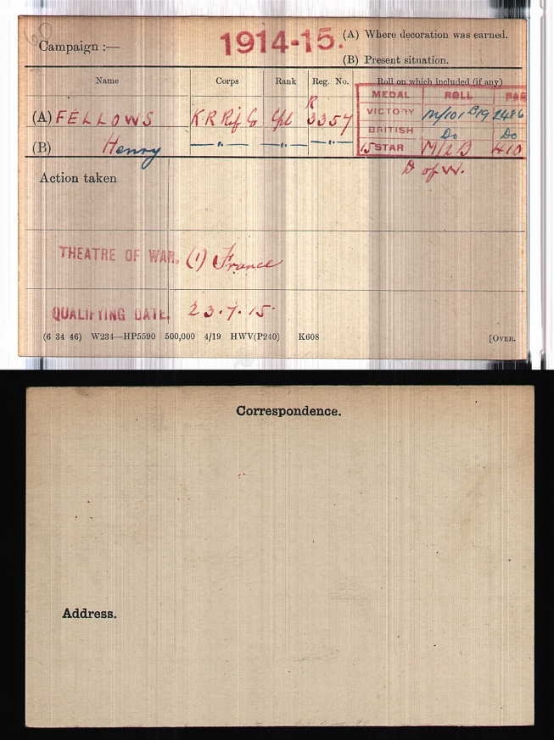 Campaign :—
1914-15.
(A) Where decoration was earned.
(B) Present situation.
Name Corps Rank Reg. No. Roll on which included (if any)
MEDAL ROLL PAGE
(A) FELLOWS K R Rif C Cpl R 3357
VICTORY 2486
BRITISH Do Do
(B) Henry — " — — " — — " —
15 STAR 410
D of W.
Action taken
THEATRE OF WAR. (1) France
QUALIFYING DATE. 23.7.15.
(6 34 46) W234—HP5590 500,000 4/19 HWV(P240) K608 [OVER.
Correspondence.
Address.